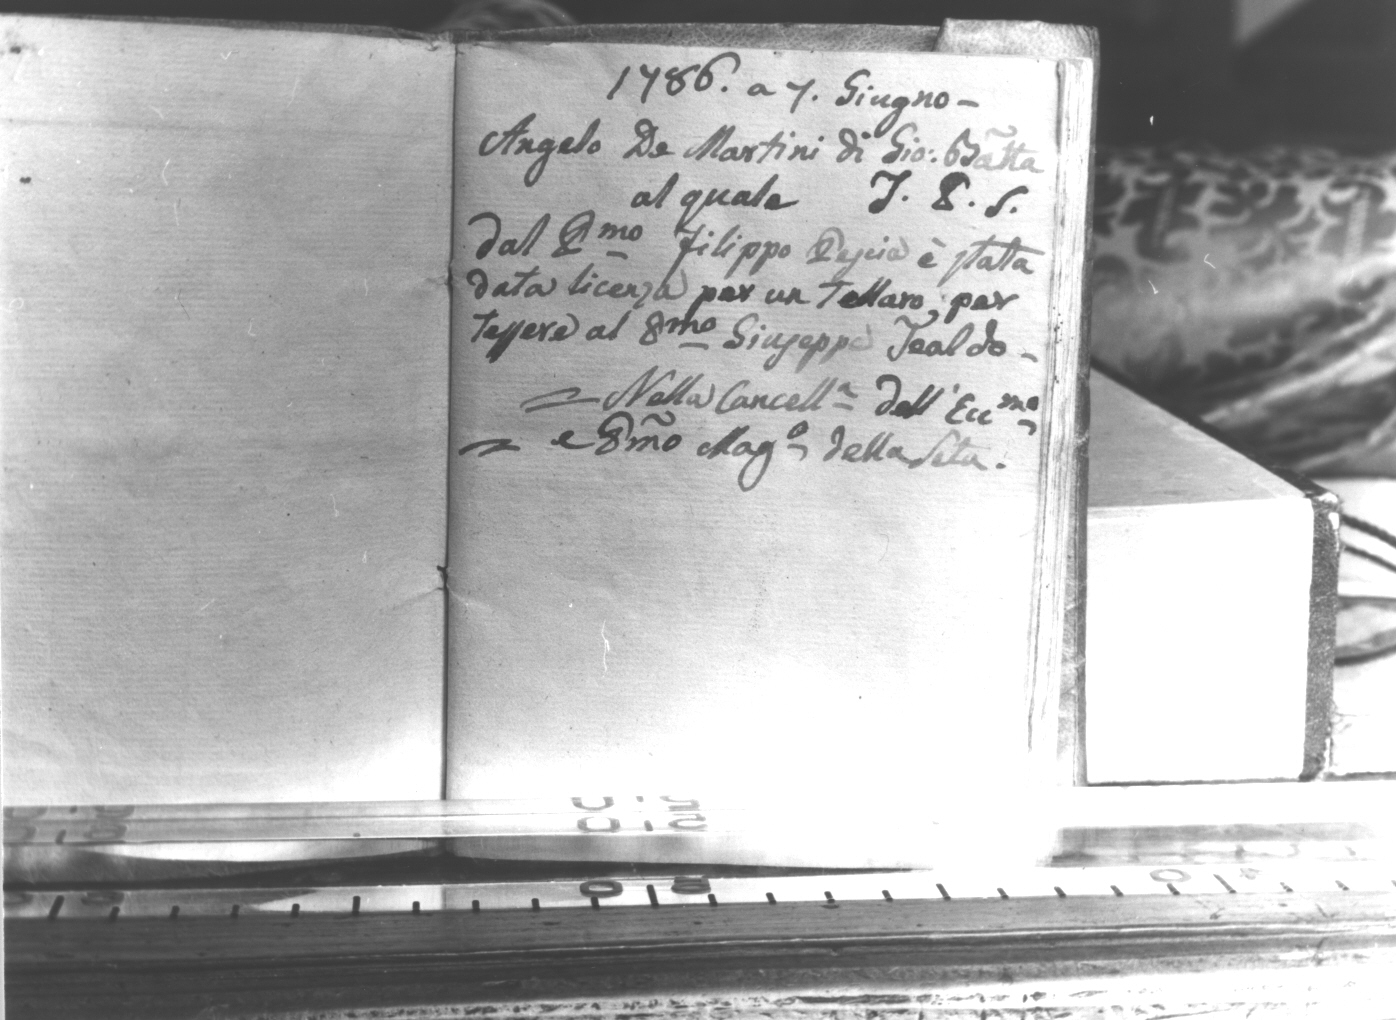 1786. a 7. Giugno -
Angelo De Martini di Gio: Batta
al quale J. P. S.
dal P.mo Filippo Pescia è stata
data licenza per un Tellaro, per
tessere al P.mo Giuseppe Tealdo -
= Nella Cancell.a dell'Ecc.mo
= e P.mo Mag.o della Seta.
50 50
50 50
50 40